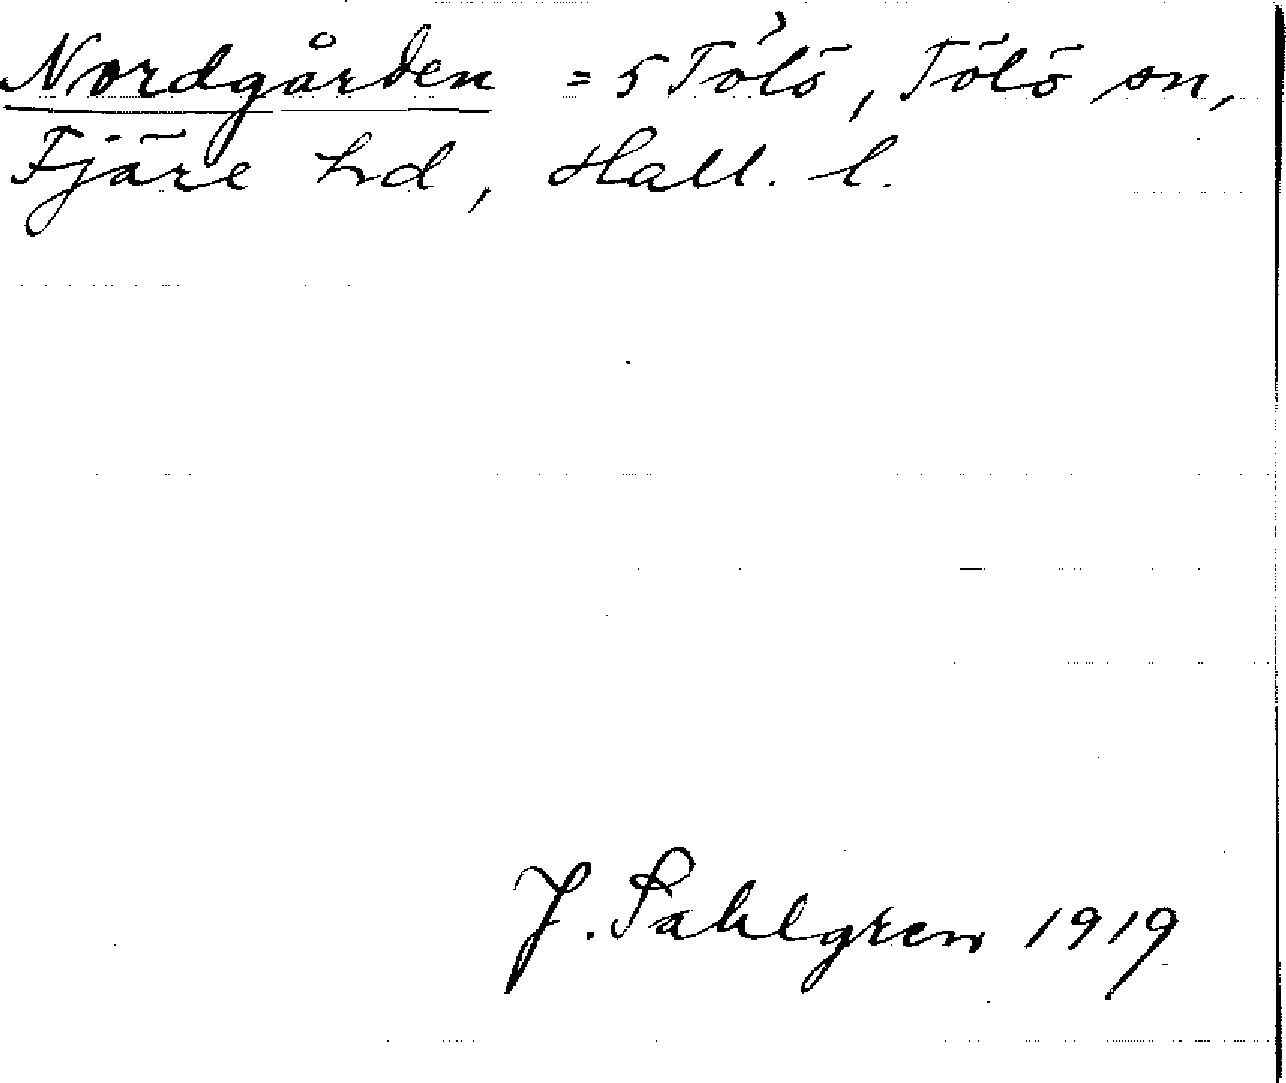 Nordgården = 5 Tölö, Tölö sn,
Fjäre hd, Hall. l.
J. Sahlgren 1919